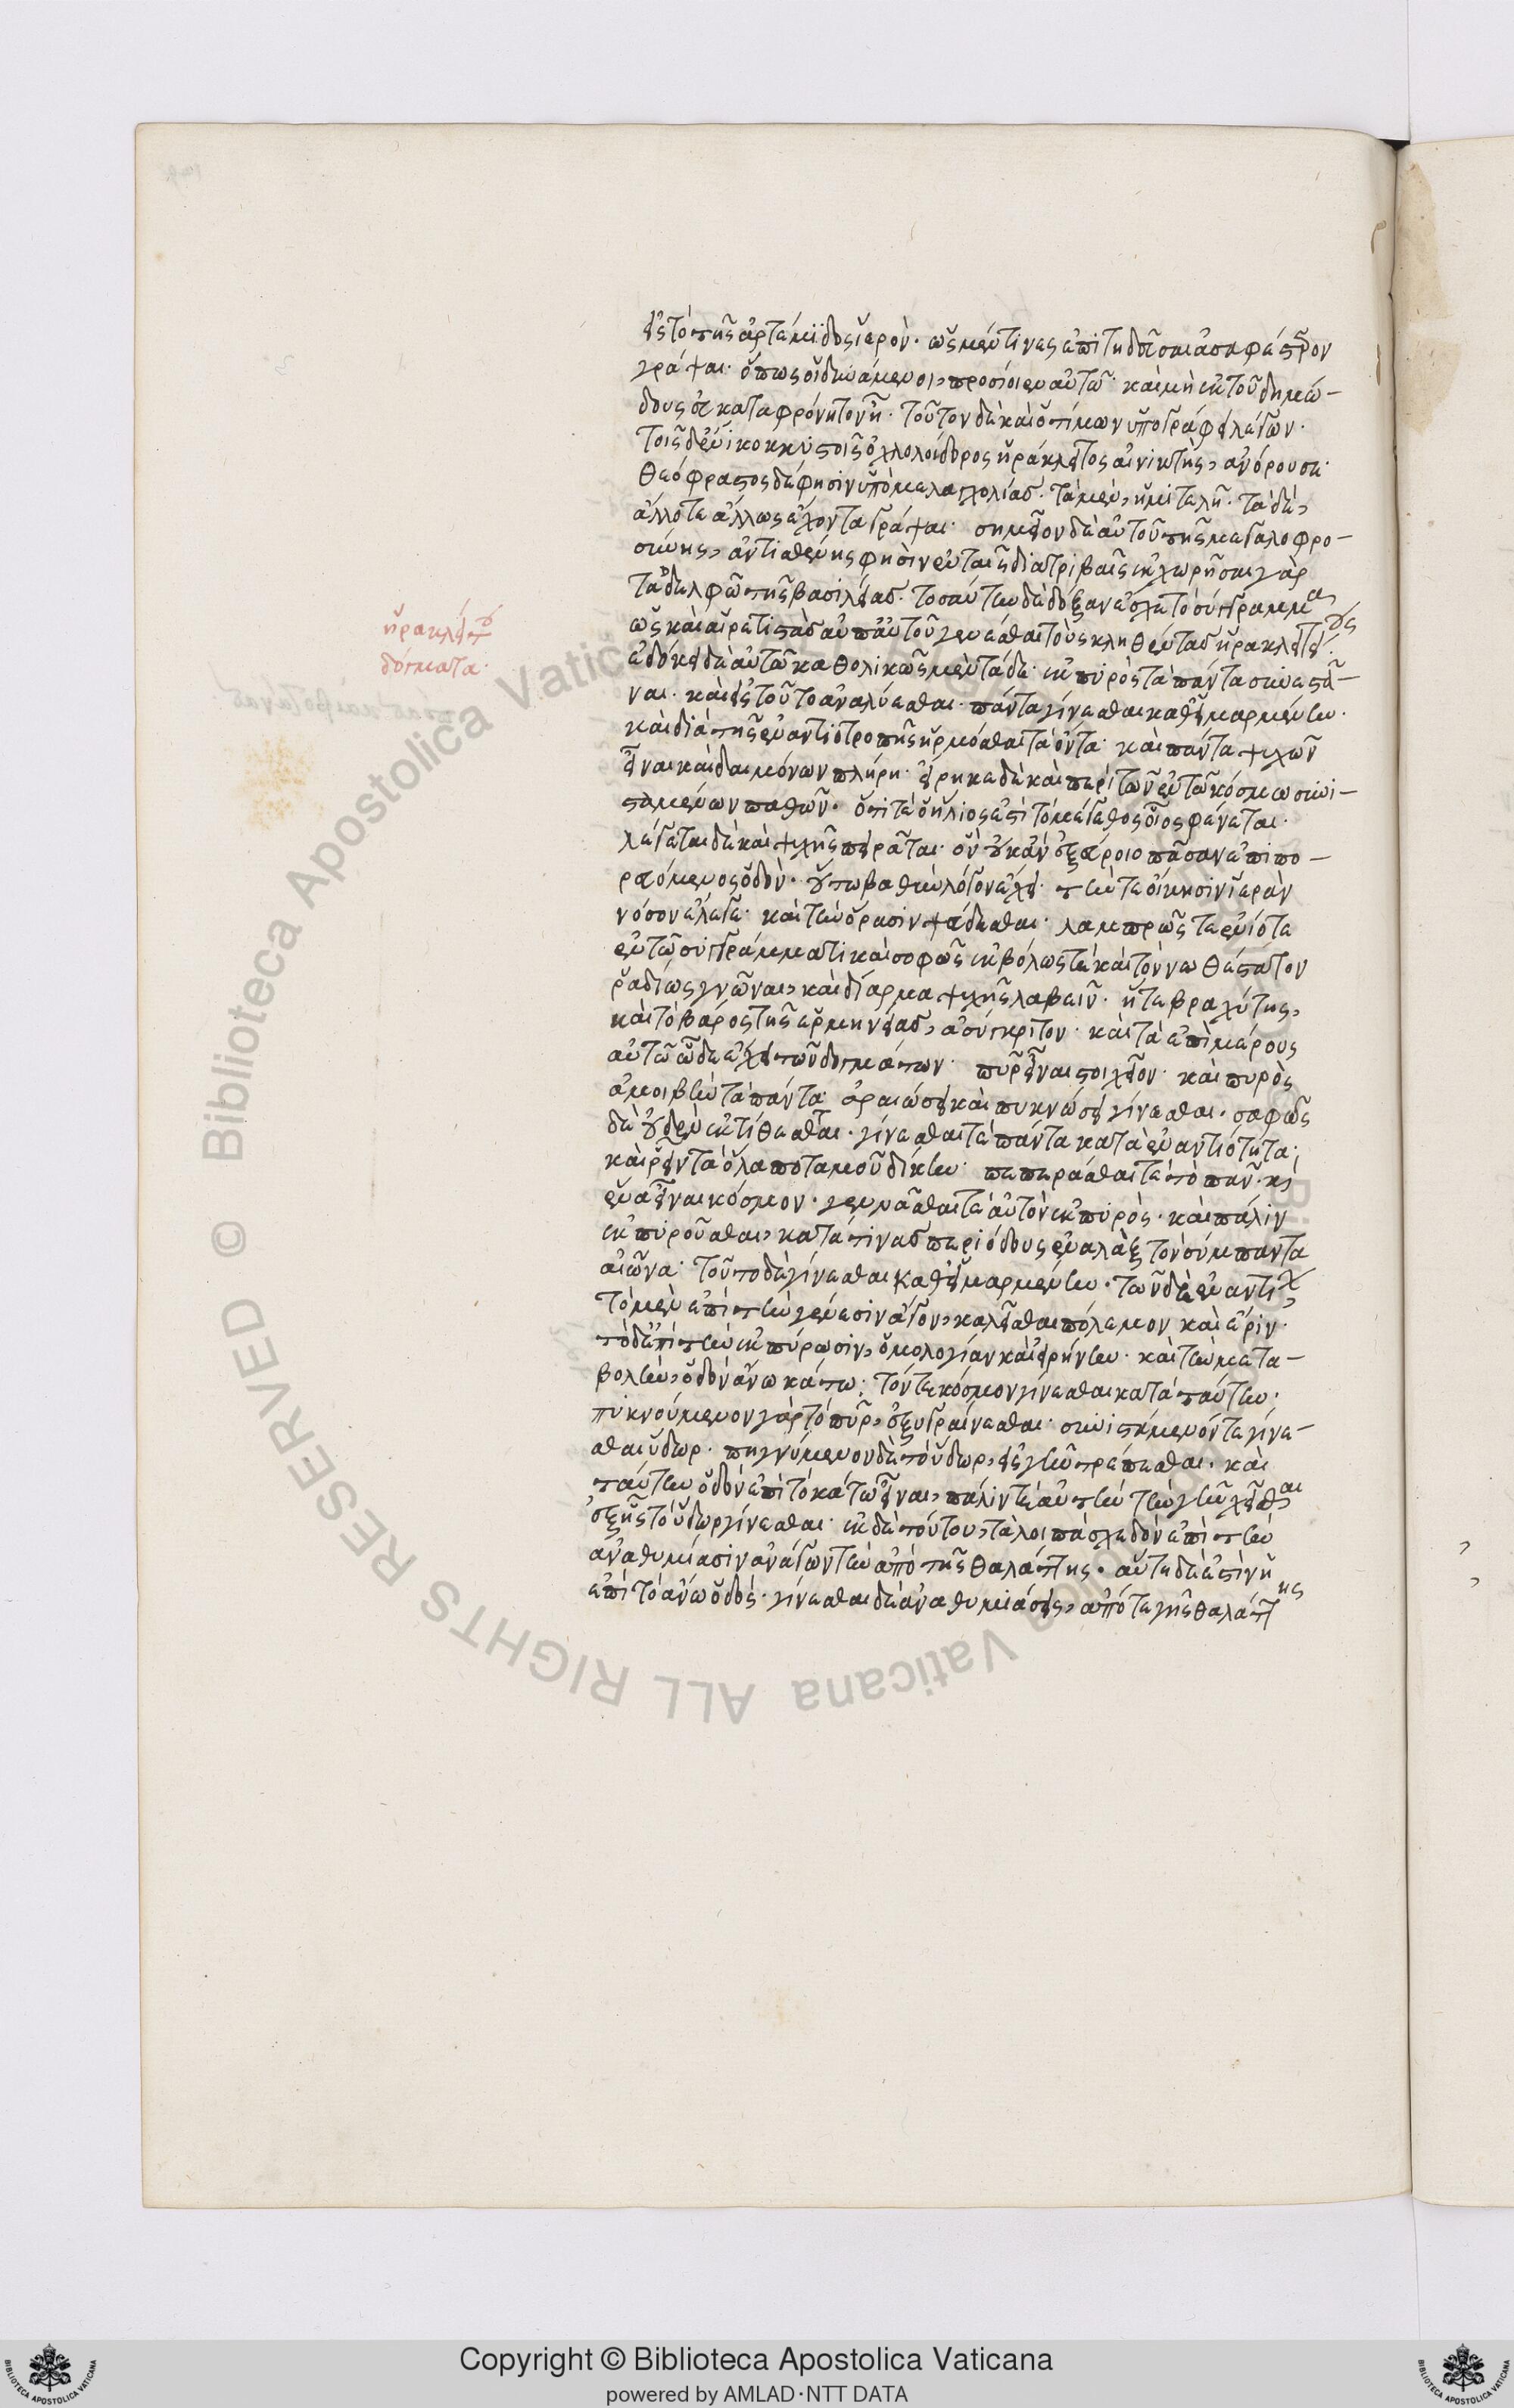 εἰς τὸ τῆς ἀρτέμιδος ἱερόν· ὡς μέν τινες ἐπιτηδεῦσαι ἀσαφέστερον
γράψαι· ὅπως οἱ δυνάμενοι προσίοιεν αὐτῶ· καὶ μὴ ἐκ τοῦ δημώ-
δους εὐκαταφρόνητον ἦ· τοῦτον δὲ καὶ ὁ τίμων ὑπογράφει λέγων·
τοῖς δ' ἔνι κοκκυστὴς ὀχλολοίδορος ἡράκλειτος αἰνικτὴς, ἀνόρουσε·
θεόφραστος δέ φησιν ὑπὸ μελαγχολίας· τὰ μὲν, ἡμιτελῆ· τὰ δὲ,
ἄλλοτε ἄλλως ἔχοντα γράψαι· σημεῖον δὲ αὐτοῦ τῆς μεγαλοφρο-
σύνης, ἀντισθένης φησὶν ἐν ταῖς διαδοχαῖς ἐκχωρῆσαι γὰρ
τἀδελφῶ τῆς βασιλείας· τοσαύτην δὲ δόξαν ἔσχε τὸ σύγγραμμα,
ὡς καὶ αἱρετιστὰς ἀπ' αὐτοῦ γενέσθαι τοὺς κληθέντας ἡρακλειτείους·
ἐδόκει δὲ αὐτῶ καθολικῶς μὲν τάδε· ἐκ πυρὸς τὰ πάντα συνεστά-
ναι· καὶ εἰς τοῦτο ἀναλύεσθαι· πάντα γίνεσθαι καθ' εἱμαρμένην·
καὶ διὰ τῆς ἐναντιοτροπῆς ἡρμόσθαι τὰ ὄντα· καὶ πάντα ψυχῶν
εἶναι καὶ δαιμόνων πλήρη· εἴρηκε δὲ καὶ περὶ τῶν ἐν τῶ κόσμω συνι-
σταμένων παθῶν· ὅτι τε ὁ ἥλιός ἐστι τὸ μέγεθος οἷος φαίνεται·
λέγεται δὲ καὶ ψυχῆς πείρατα· ὃν οὐκ ἂν ἐξεύροιο πᾶσαν ἐπιπο-
ρευόμενος ὁδόν· οὕτω βαθὺν λόγον ἔχει· τήν τε οἴησιν ἱερὰν
νόσον ἔλεγε· καὶ τὴν ὅρασιν ψεύδεσθαι· λαμπρῶς τε ἐνίοτε
ἐν τῶ συγγράμματι καὶ σαφῶς ἐκβάλλει· ὥστε καὶ τὸν νωθέστατον
ῥαδίως γνῶναι, καὶ δίαρμα ψυχῆς λαβεῖν· ἥ τε βραχύτης,
καὶ τὸ βάρος τῆς ἑρμηνείας, ἀσύγκριτον· καὶ τὰ ἐπὶ μέρους
αὐτῶ ὧδε ἔχει τῶν δογμάτων· πῦρ εἶναι στοιχεῖον· καὶ πυρὸς
ἀμοιβὴν τὰ πάντα ἀραιώσει καὶ πυκνώσει γίνεσθαι· σαφῶς
δὲ οὐδὲν ἐκτίθεσθαι· γίνεσθαί τε πάντα κατὰ ἐναντιότητα·
καὶ ῥεῖν τὰ ὅλα ποταμοῦ δίκην· πεπεράσθαι τε τὸ πᾶν· καὶ
ἕνα εἶναι κόσμον· γεννᾶσθαί τε αὐτὸν ἐκ πυρὸς· καὶ πάλιν
ἐκπυροῦσθαι, κατά τινας περιόδους ἐναλλὰξ τὸν σύμπαντα
αἰῶνα· τοῦτο δὲ γίνεσθαι καθ' εἱμαρμένην· τῶν δὲ ἐναντί,
τὸ μὲν ἐπὶ τὴν γένεσιν ἄγον, καλεῖσθαι πόλεμον καὶ ἔριν·
τὸ δ' ἐπὶ τὴν ἐκπύρωσιν, ὁμολογίαν καὶ εἰρήνην· καὶ τὴν μετα-
βολὴν, ὁδὸν ἄνω κάτω· τόν τε κόσμον γίνεσθαι κατὰ ταύτην·
πυκνούμενον γὰρ τὸ πῦρ, ἐξυγραίνεσθαι· συνιστάμενόν τε γίνε-
σθαι ὕδωρ· πηγνύμενον δὲ τὸ ὕδωρ, εἰς γῆν τρέπεσθαι· καὶ
ταύτην ὁδὸν ἐπὶ τὸ κάτω εἶναι, πάλιν τε αὖ τὴν γῆν χεῖσθαι
ἐξ ἧς τὸ ὕδωρ γίνεσθαι· ἐκ δὲ τούτου, τὰ λοιπὰ σχεδὸν ἐπὶ τὴν
ἀναθυμίασιν ἀνάγων τὴν ἀπὸ τῆς θαλάττης· αὕτη δέ ἐστιν ἡ
ἐπὶ τὸ ἄνω ὁδός· γίνεσθαι δὲ ἀναθυμιάσεις, ἀπό τε γῆς θαλάττης
ἡρακλείτου
δόγματα·
© Biblioteca Apostolica Vaticana ALL RIGHTS RESERVED
Copyright © Biblioteca Apostolica Vaticana
powered by AMLAD·NTT DATA
BIBLIOTECA APOSTOLICA VATICANA
BIBLIOTECA APOSTOLICA VATICANA